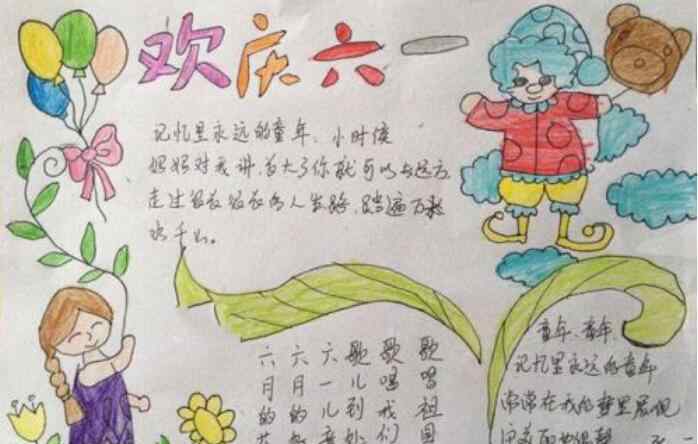 欢庆六一
记忆里永远的童年、小时候
妈妈对我讲,长大了你就可以去远方,
走过很长很长的人生路,踏遍万水
千山。
歌唱祖国
歌唱我们
歌儿到处
六一儿童
六月的
六月的花
童年、童年、
记忆里永远的童年
常常在我的梦里展现